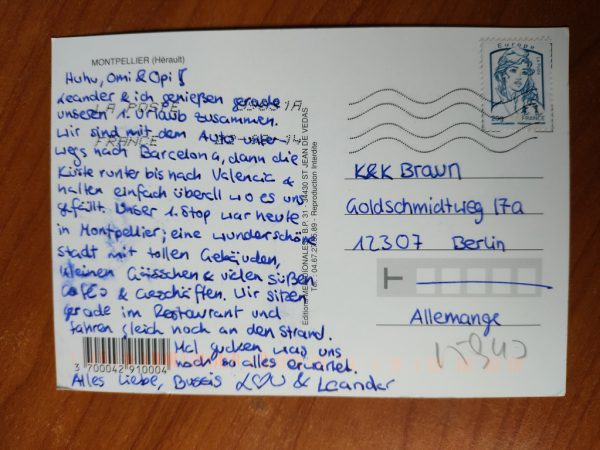 MONTPELLIER (Hérault)
Huhu, Omi & Opi!
Leander & ich genießen gerade
unseren 1. Urlaub zusammen.
LA POSTE
Wir sind mit dem Auto unter-
FRANCE
wegs nach Barcelona, dann die
Küste runter bis nach Valencia &
halten einfach überall wo es uns
gefällt. Unser 1. Stop war heute
in Montpellier; eine wunderschöne
stadt mit tollen Gebäuden,
kleinen Gässchen & vielen süßen
Cafés & Geschäften. Wir sitzen
gerade im Restaurant und
fahren gleich noch an den Strand.
Mal gucken was uns
noch so alles erwartet.
3 700042 910004
Alles Liebe, Bussis & Leander
Editions MERIDIONALES B.P. 31 - 34430 ST JEAN DE VEDAS
Tél.: 04.67.27.65.89 - Reproduction Interdite
Europe
20g
FRANCE
K&K Braun
Goldschmidtweg 17a
12307 Berlin
Allemange